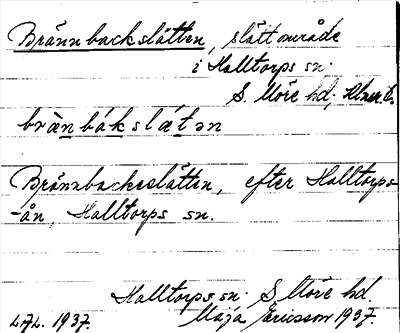 Brännbackslåtten, slåttområde
i Halltorps sn.
S. Möre hd, Klmr. l.
brànbákslǻtən
Brännbackeslåtten, efter Halltorps-
-ån, Halltorps sn.
Halltorps sn. S Möre hd.
1937. Maja Ericsson 1937.